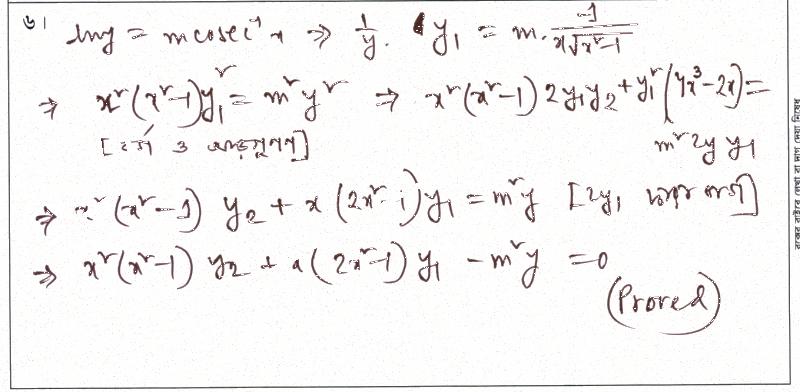 ৬।
ln y = m cosec⁻¹x ⇒ 1/y . y₁ = m. -1/(x√(x²-1))
⇒ x²(x²-1)y₁² = m²y² ⇒ x²(x²-1) 2y₁y₂ + y₁²(4x³-2x) =
[বর্গ ও আড়গুণন] m² 2y y₁
⇒ x²(x²-1) y₂ + x(2x²-1)y₁ = m²y [2y₁
⇒ x²(x²-1) y₂ + x(2x²-1) y₁ - m²y = 0
(Proved)